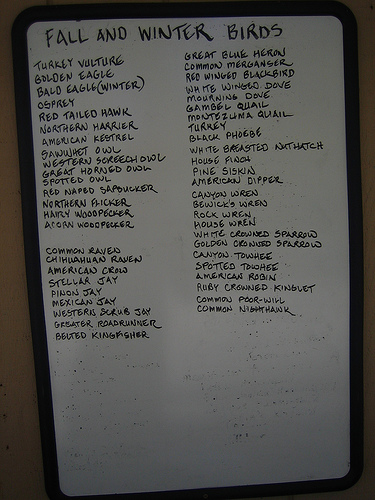 FALL AND WINTER BIRDS
TURKEY VULTURE
GOLDEN EAGLE
BALD EAGLE (WINTER)
OSPREY
RED TAILED HAWK
NORTHERN HARRIER
AMERICAN KESTREL
SAWWHET OWL
WESTERN SCREECH OWL
GREAT HORNED OWL
SPOTTED OWL
RED NAPED SAPSUCKER
NORTHERN FLICKER
HAIRY WOODPECKER
ACORN WOODPECKER
COMMON RAVEN
CHIHUAHUAN RAVEN
AMERICAN CROW
STELLAR JAY
PINON JAY
MEXICAN JAY
WESTERN SCRUB JAY
GREATER ROADRUNNER
BELTED KINGFISHER
GREAT BLUE HERON
COMMON MERGANSER
RED WINGED BLACKBIRD
WHITE WINGED DOVE
MOURNING DOVE
GAMBEL QUAIL
MONTEZUMA QUAIL
TURKEY
BLACK PHOEBE
WHITE BREASTED NUTHATCH
HOUSE FINCH
PINE SISKIN
AMERICAN DIPPER
CANYON WREN
BEWICK'S WREN
ROCK WREN
HOUSE WREN
WHITE CROWNED SPARROW
GOLDEN CROWNED SPARROW
CANYON TOWHEE
SPOTTED TOWHEE
AMERICAN ROBIN
RUBY CROWNED KINGLET
COMMON POOR-WILL
COMMON NIGHTHAWK